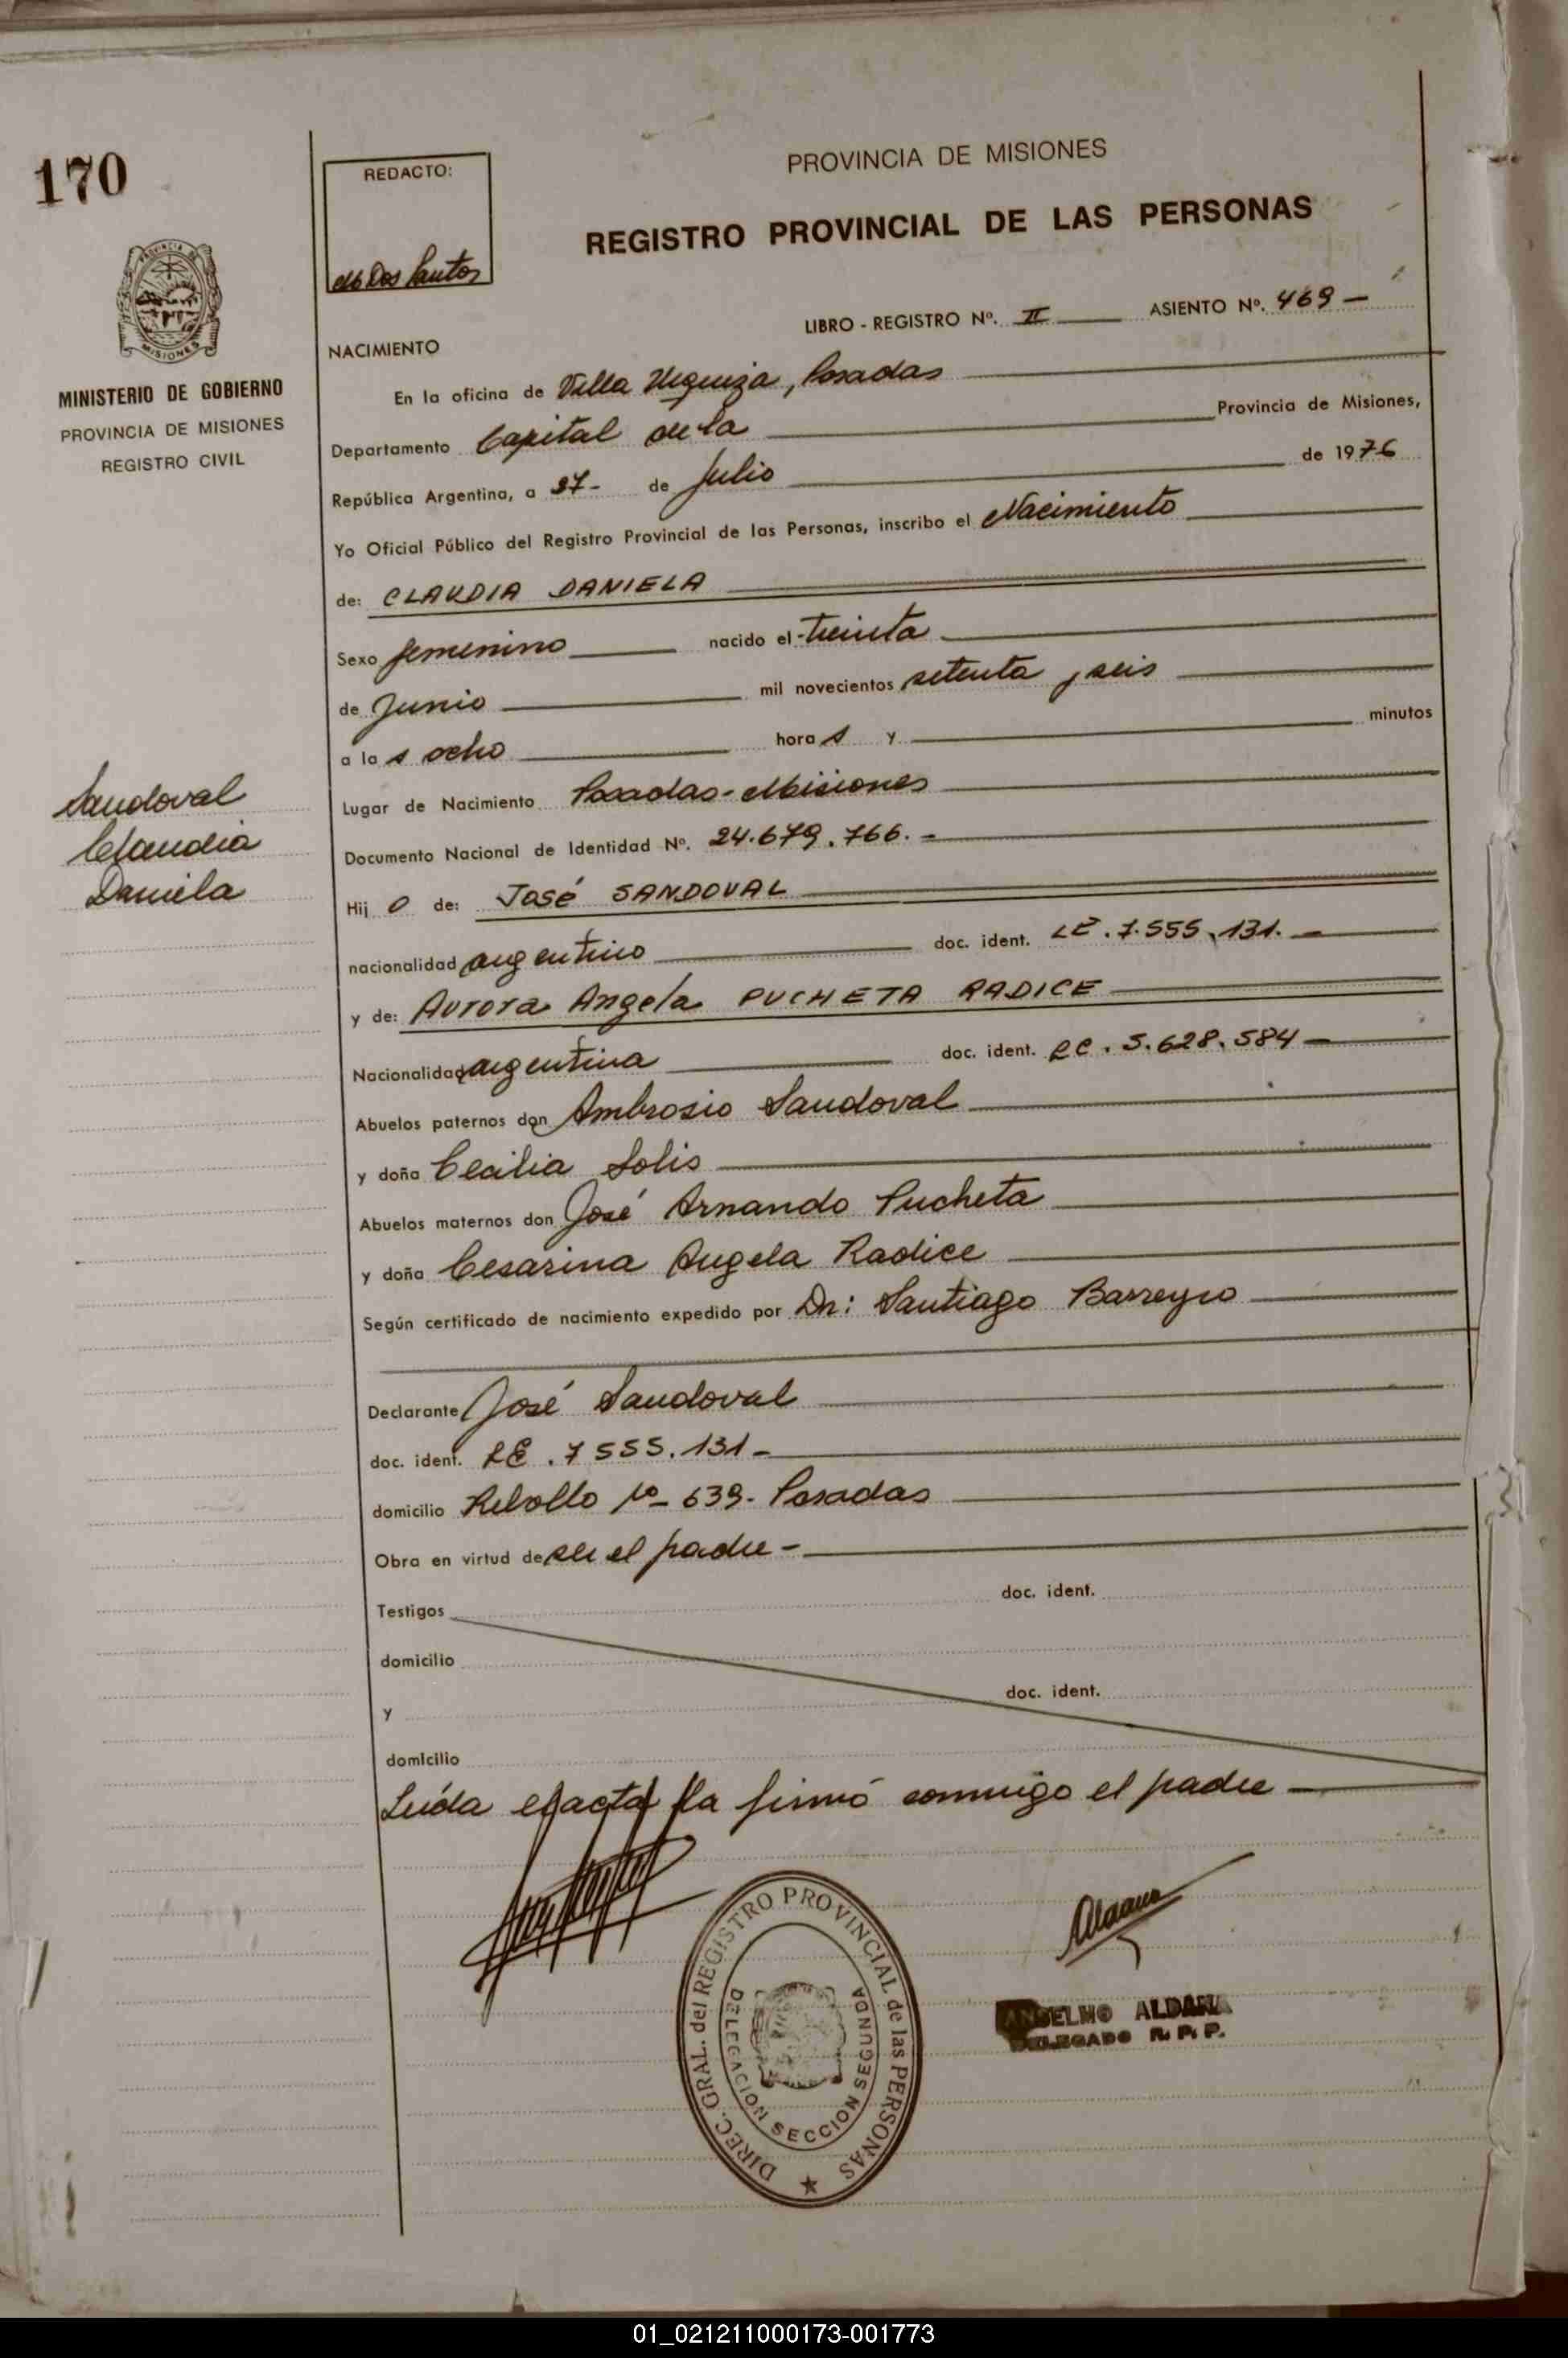 170
REDACTO:
M Dos Santos
PROVINCIA DE MISIONES
REGISTRO PROVINCIAL DE LAS PERSONAS
PROVINCIA DE
MISIONES
MINISTERIO DE GOBIERNO
PROVINCIA DE MISIONES
REGISTRO CIVIL
LIBRO - REGISTRO Nº. II ASIENTO Nº. 469 -
NACIMIENTO
En la oficina de Villa Urquiza, Posadas
Departamento Capital de la Provincia de Misiones,
República Argentina, a 27- de Julio de 1976
Yo Oficial Público del Registro Provincial de las Personas, inscribo el Nacimiento
de: CLAUDIA DANIELA
Sexo femenino nacido el treinta
de Junio mil novecientos setenta y seis
a la s ocho hora s y minutos
Sandoval
Claudia
Daniela
Lugar de Nacimiento Posadas - Misiones
Documento Nacional de Identidad Nº. 24.679.766. -
Hij o de: José SANDOVAL
nacionalidad argentino doc. ident. LE. 7.555.131. -
y de: Aurora Angela PUCHETA RADICE
Nacionalidad argentina doc. ident. LC. 5.628.584 -
Abuelos paternos don Ambrosio Sandoval
y doña Cecilia Solis
Abuelos maternos don José Armando Pucheta
y doña Cesarina Angela Radice
Según certificado de nacimiento expedido por Dr: Santiago Barreyro
Declarante José Sandoval
doc. ident. LE. 7555.131 -
domicilio Rebollo Nº 639 - Posadas
Obra en virtud de ser el padre -
Testigos doc. ident.
domicilio
y doc. ident.
domicilio
Leída el acta la firmó conmigo el padre
DIREC. GRAL. del REGISTRO PROVINCIAL de las PERSONAS
DELEGACION SECCION SEGUNDA
Aldana
ANSELMO ALDANA
DELEGADO R. P. P.
01_021211000173-001773